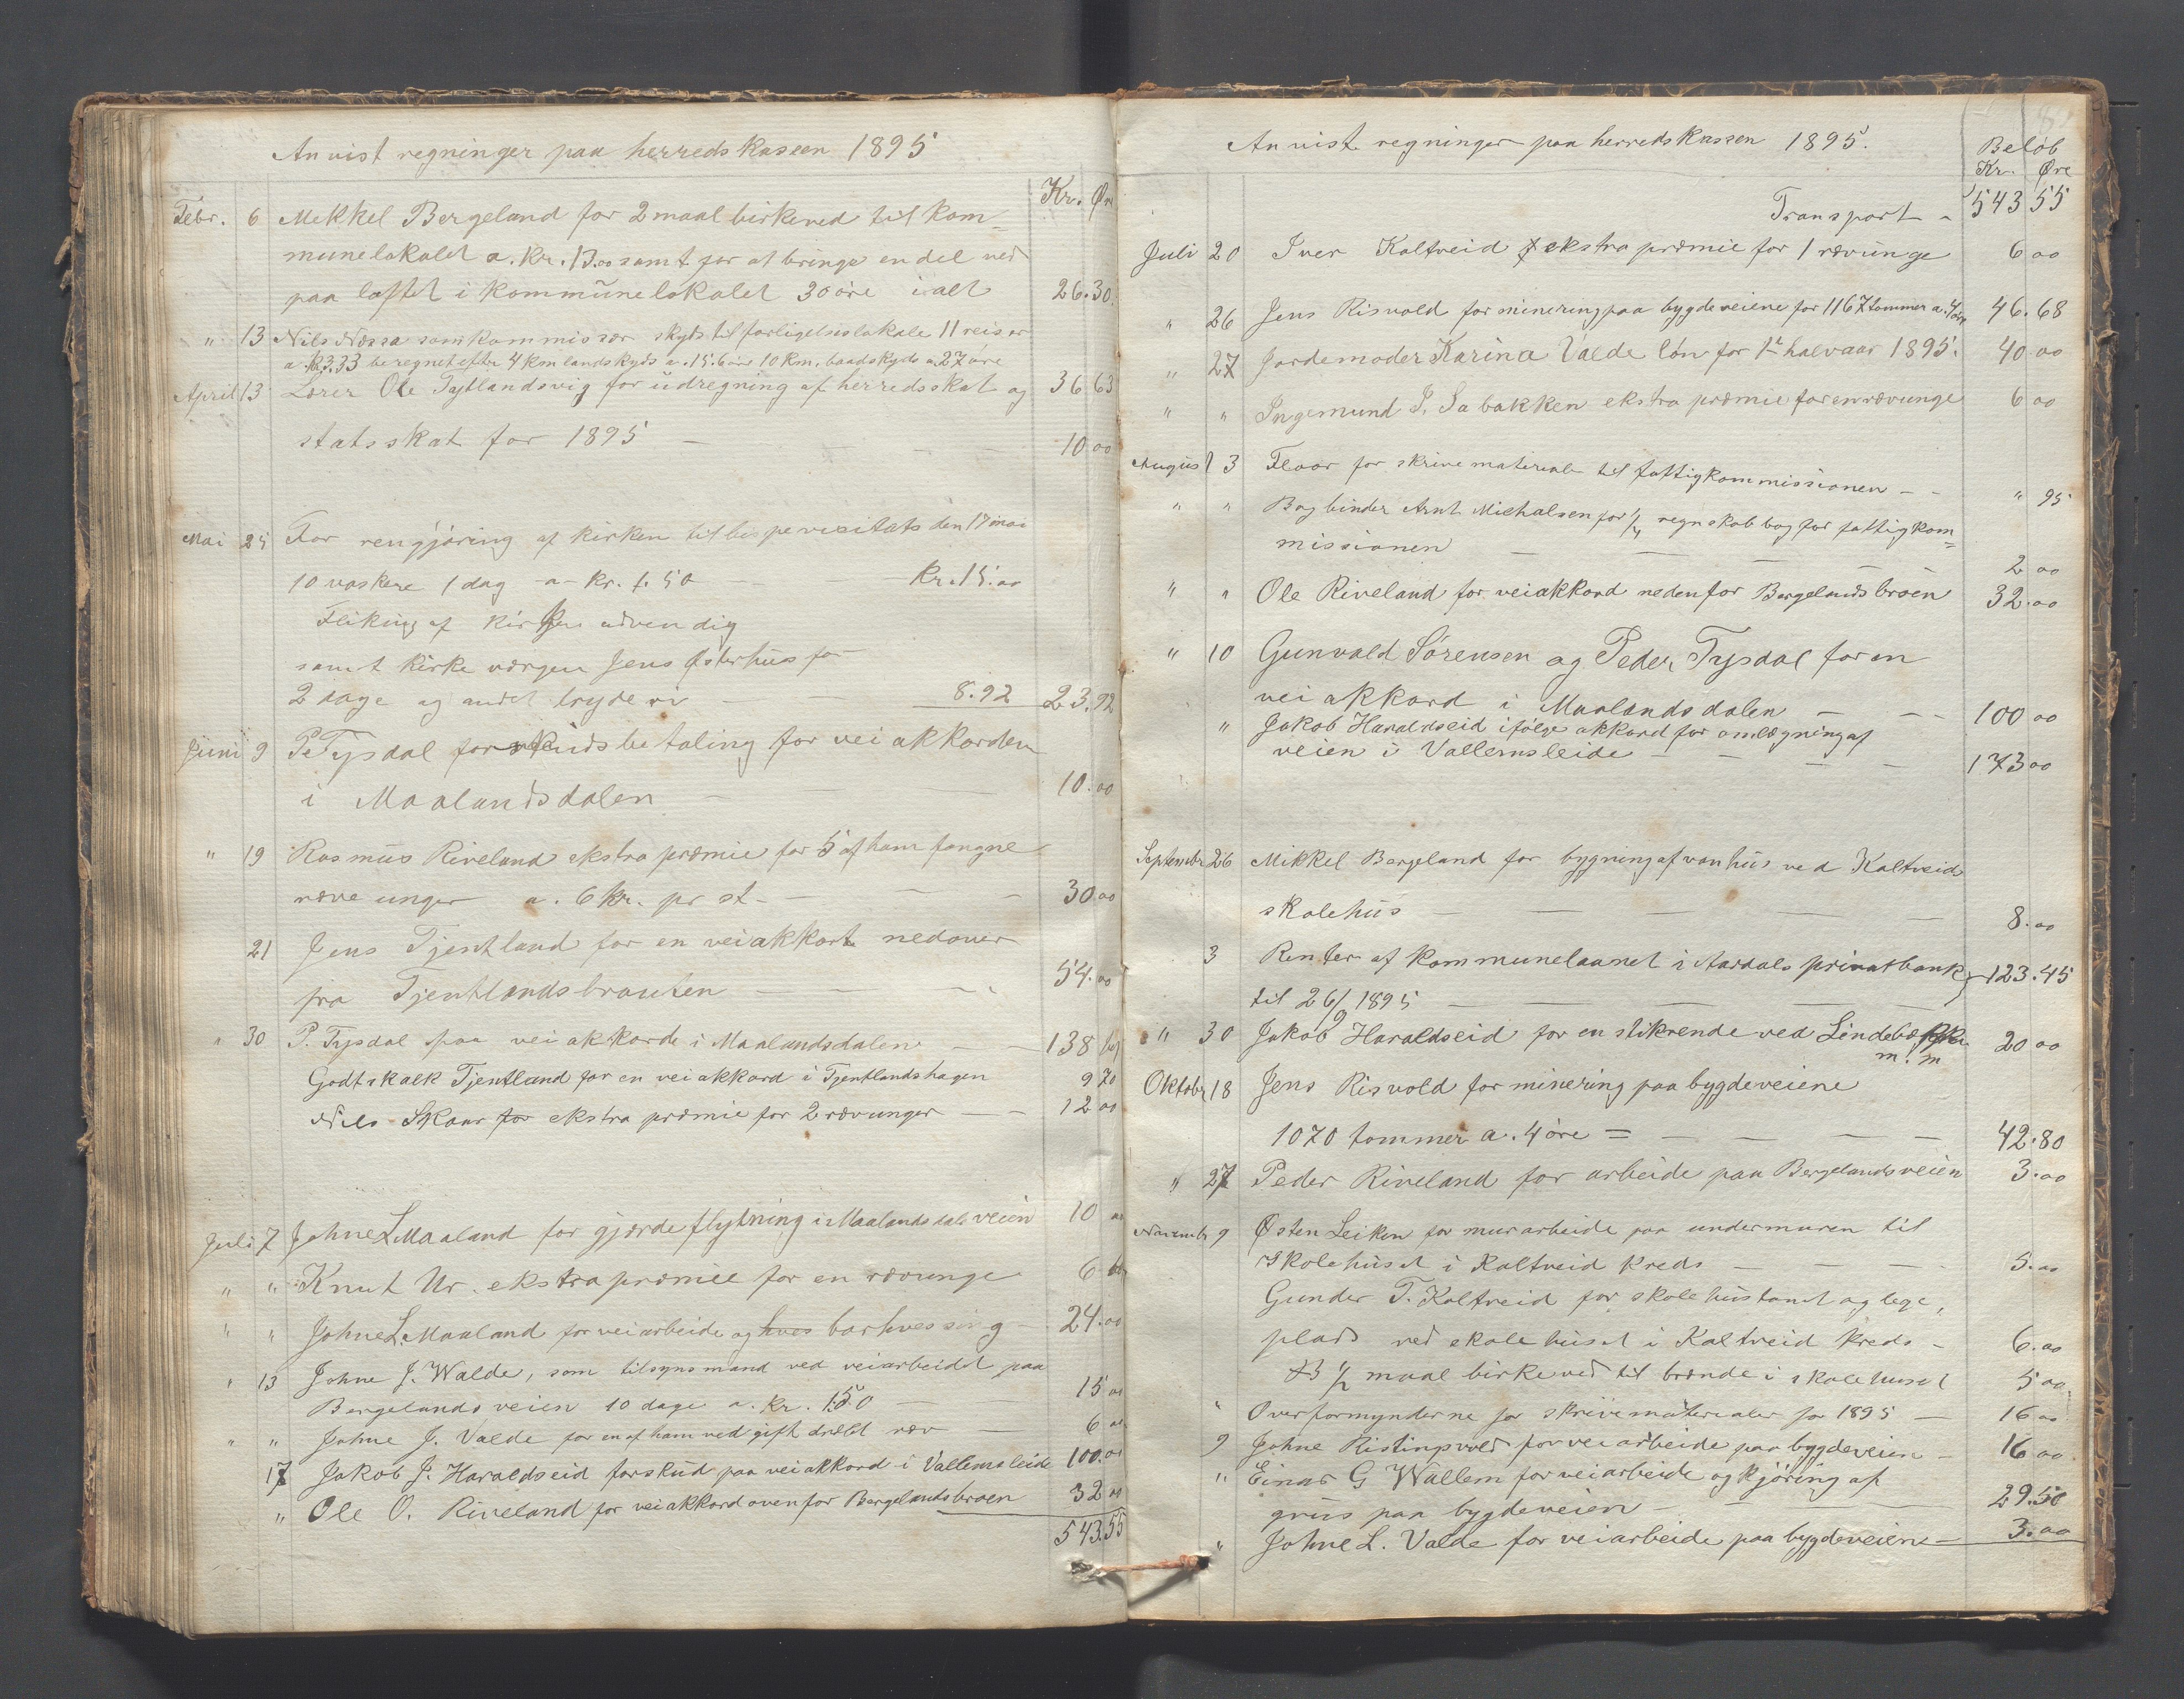 Anvist regninger paa herredskassen 1895
Kr. Øre
Febr. 6 Mekkel Bergeland for 2 maal birkeved til kom=
munelokalet a. Kr. 13.00 samt for at bringe en del ved
paa loftet i kommunelokalet 30 øre ialt 26.30.
" 13 Nils Nessa som kommissær skyds til forligelseslokale 11 reiser
a. kr 3.33 beregnet efter 4 km landskyds a. 15.6 øre 10 km. baadskyds a 27 øre
April 13 Lærer Ole Tytlandsvig for udregning af herredsskat og 36 63
statsskat for 1895 — — — 10 00
Mai 25 For rengjøring af kirken til bispevisitats den 17 mai
10 vaskere 1 dag -a- Kr. 1.50 — Kr. 15.00
Flikking af kirken udvendig
samt kirkeværgen Jens Østerhus for
2 dage og andet bryderi — 8.92 23.92
Juni 9 P. Tysdal forskudsbetaling for veiakkorden
i Maalandsdalen — — 10.00
" 19 Rasmus Riveland ekstra præmie for 5 af ham fangne
ræve unger a. 6 kr. pr st. — — — 30 00
21 Jens Tjentland for en veiakkort nedover
fra Tjentlandsbrauten — — — 54.00
" 30 P. Tysdal paa veiakkorde i Maalandsdalen — — 138 00
Godtskalk Tjentland for en veiakkord i Tjentlandshagen 9 70
Nils Skaar for ekstra præmie for 2 rævunger — — 12 00
Juli 7 Johne L Maaland for gjærdeflytning i Maalandsdalsveien 10 00
" " Knut Ur. ekstra præmie for en rævunge 6 00
" " Johne L. Maaland for veiarbeide og hves borhvessing — 24.00
" 13 Johne J. Walde, som tilsynsmand ved veiarbeidet paa
Bergelands veien 10 dage a. Kr. 1.50 — 15 00
" " Johne J. Valde for en af ham ved gift dræbt ræv — 6 00
17 Jakob J. Haraldseid forskud paa veiakkord i Vallemsleide 100.00
" Ole O. Riveland for veiakkord ovenfor Bergelandsbroen 32 00
543.55
Anvist regninger paa herredskassen 1895.
Beløb
Kr. Øre
Transport " 543 55
Juli 20 Iver Kaltveid f ekstra præmie for 1 rævunge 6 00
" 26 Jens Risvold for minering paa bygdeveiene for 1167 tommer a. 4 øre 46.68
" 27 Jordemoder Karina Valde løn for 1ste halvaar 1895. 40 00
" " Ingemund I. Sabakken ekstra præmie for en rævunge 6 00
August 3 Floor for skrivematerialer til fattigkommissionen — — " 95
" " Bogbinder Arnt Michalsen for 1/4 regnskabbog for fattigkom=
missionen — — — — — 2 00
" " Ole Riveland for veiakkord nedenfor Bergelandsbroen 32.00
" 10 Gunvald Sørensen og Peder Tysdal for en
veiakkord i Maalandsdalen — — — 100 00
" Jakob Haraldseid ifølge akkord for omlægning af
veien i Vallemsleide — — — — 173 00
September 26 Mikkel Bergeland for bygning af vonhus ved Kaltveid
skolehus — — — — — 8.00
3 Renter af kommunelaanet i Aardals privatbank
til 26/9 1895 — — — — 123.45
" 30 Jakob Haraldseid for en stikrende ved Lindebækken
m. m 20 00
Oktober 18 Jens Risvold for minering paa bygdeveiene
1070 tommer a. 4 øre = — — — — 42.80
" 27 Peder Riveland for arbeide paa Bergelandsveien 3.00
November 9 Østen Leiken for murarbeide paa undermuren til
skolehuset i Kaltveid kreds — — — 5.00
Gunder T. Kaltveid for skolehustomt og lege,
plads ved skolehuset i Kaltveid kreds — 6.00
1/2 maal birkeved til brænde i skolehuset 5 00
" Overformynderne for skrivematerialer for 1895 — 16 00
9 Johne Ristingsvold for veiarbeide paa bygdeveien — 16 00
" Einar G Wallem for veiarbeide og kjøring af
grus paa bygdeveien — — — 29.50
" Johne L. Valde for veiarbeide paa bygdeveiene — 3.00